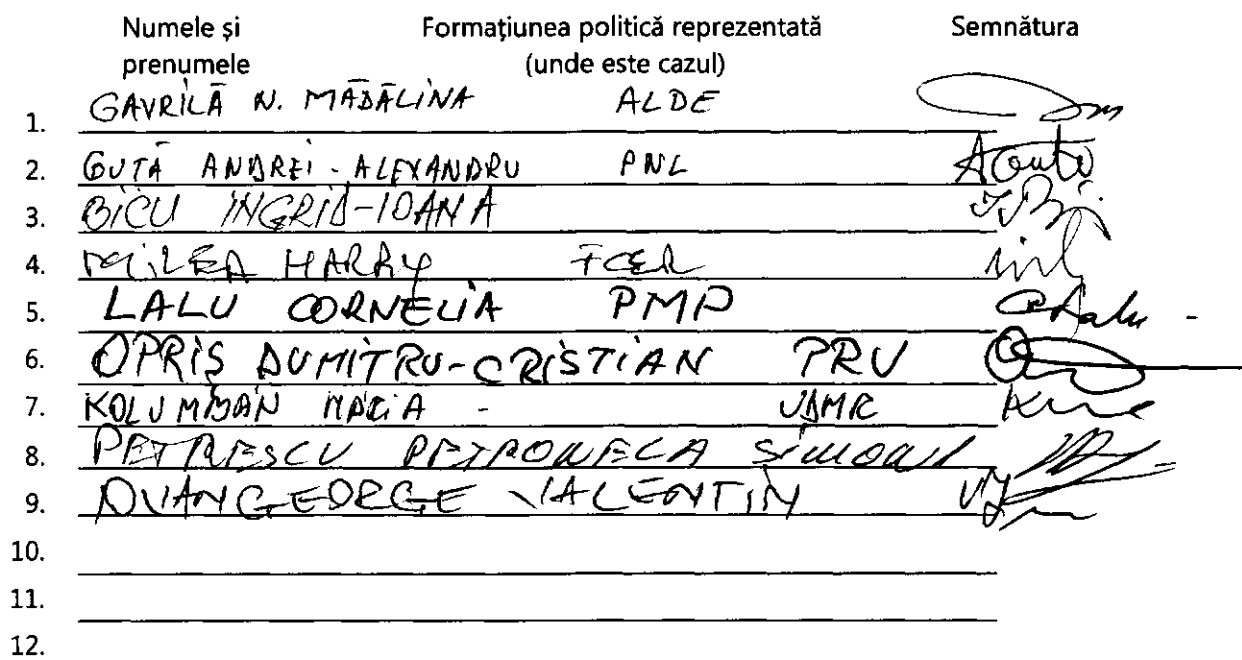 Numele și prenumele Formațiunea politică reprezentată (unde este cazul) Semnătura
1. GAVRILĂ N. MĂDĂLINA ALDE
2. GUȚĂ ANDREI-ALEXANDRU PNL
3. BÎCU INGRID-IOANA
4. MILEA HARRY FCER
5. LALU CORNELIA PMP
6. OPRIȘ DUMITRU-CRISTIAN PRU
7. KOLUMBAN MARIA - UDMR
8. PETRESCU PETRONELA
9. GEORGE VALENTIN
10.
11.
12.